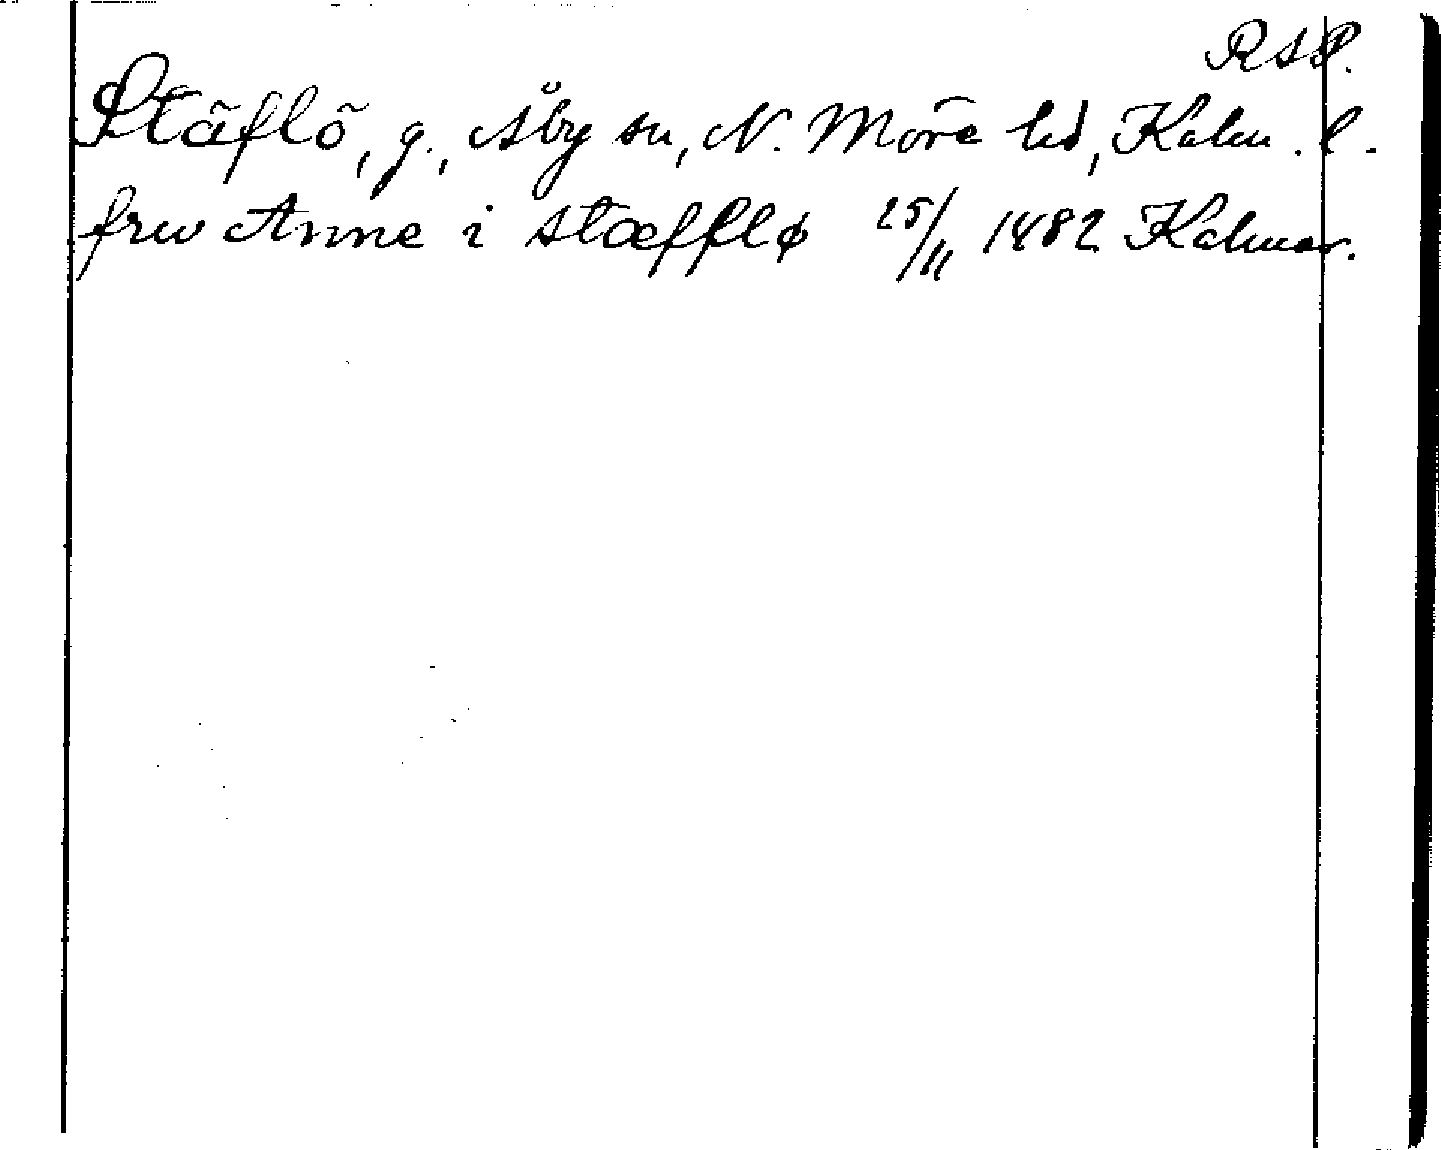 RAP.
Stäflö, g., Åby sn, N. Möre hd, Kalm. l.
frw Anne i stæfflø 25/11 1482 Kalmar.